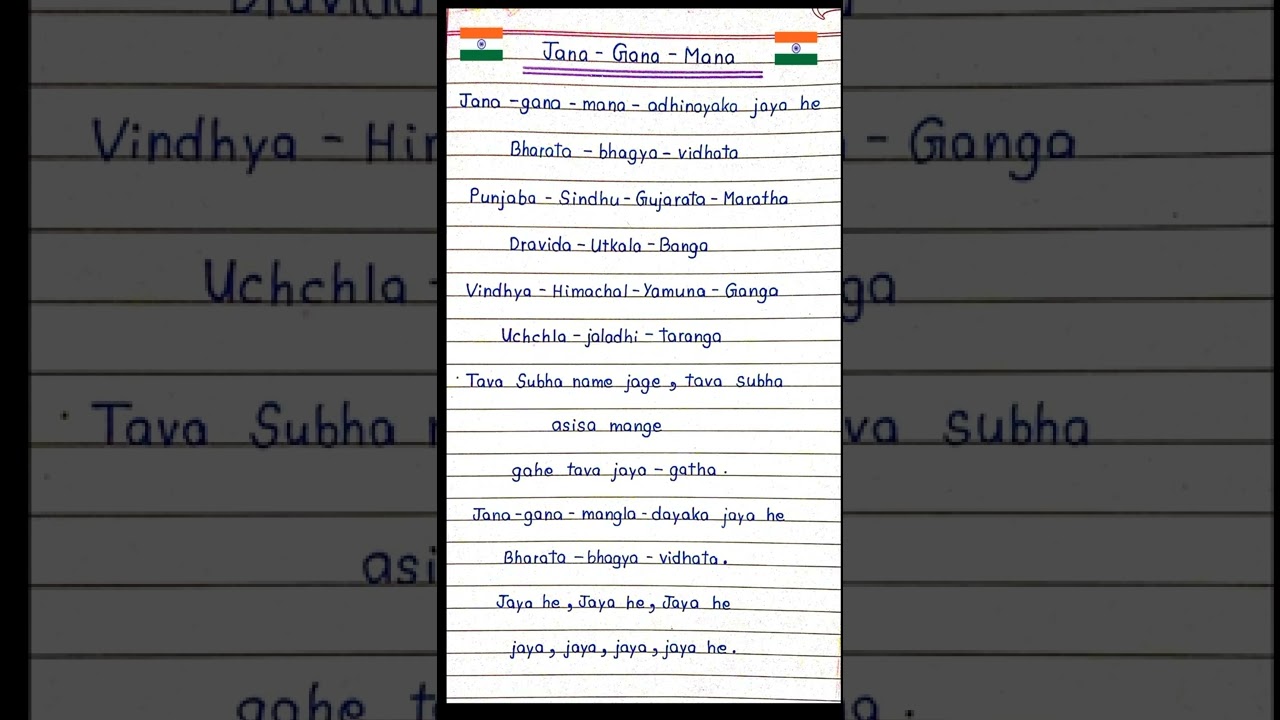 Jana - Gana - Mana
Jana - gana - mana - adhinayaka jaya he
Bharata - bhagya - vidhata
Punjaba - Sindhu - Gujarata - Maratha
Dravida - Utkala - Banga
Vindhya - Himachal - Yamuna - Ganga
Uchchla - jaladhi - taranga
Tava Subha name jage, tava subha
asisa mange
gahe tava jaya - gatha.
Jana - gana - mangla - dayaka jaya he
Bharata - bhagya - vidhata.
Jaya he, Jaya he, Jaya he
jaya, jaya, jaya, jaya he.